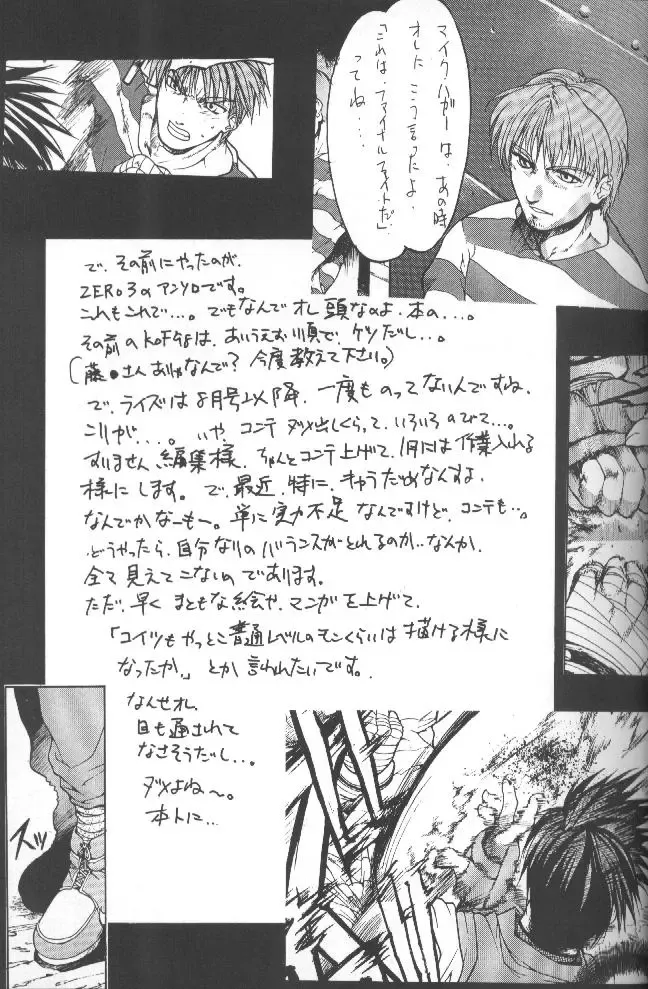 マイクハガーは、あの時
オレにこう言ったよ、
「これは、ファイナルファイトだ」
ってね…
で、その前にやったのが、
ZERO3のアンソロです。
これもこれで…。でもなんでオレ頭なのよ、本の…。
その前のKOF98は、あいうえお順で、ケツだし…。
(藤●さんありゃなんで?今度教えて下さい。)
で、ライズは8月号以降、一度ものってないんですね、
こりが…。いや、コンテダメ出しくらって、いろいろのびて…。
すいません、編集様、ちゃんとコンテ上げて、1月には作業入れる
様にします。で、最近、特に、キャラだめなんすよ、
なんでかなーもー。単に実力不足なんですけど、コンテも…。
どうやったら、自分なりのバランスがとれるのか…なんか、
全て見えてこないのであります。
ただ、早くまともな絵や、マンガを上げて、
「コイツもやっとこ普通レベルのモンくらいは描ける様に
なったか。」とか言われたいです。
なんせオレ、
目も通されて
なさそうだし…。
ダメよね〜。
本トに…
スッ